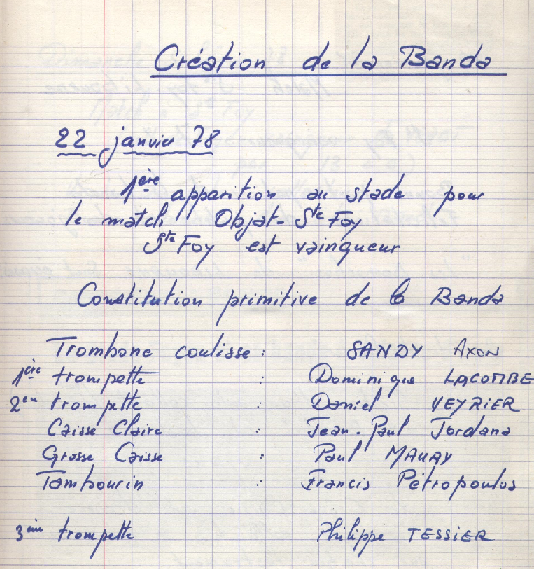 Création de la Banda
22 janvier 78
1ère apparition au stade pour
le match Objat- Ste Foy
Ste Foy est vainqueur
Constitution primitive de la Banda
Trombone coulisse : SANDY AXON
1ère trompette : Dominique LACOMBE
2em trompette : Daniel VEYRIER
Caisse Claire : Jean-Paul Jordana
Grosse Caisse : Paul MAURY
Tambourin : Francis Pétropoulos
3ème trompette Philippe TESSIER